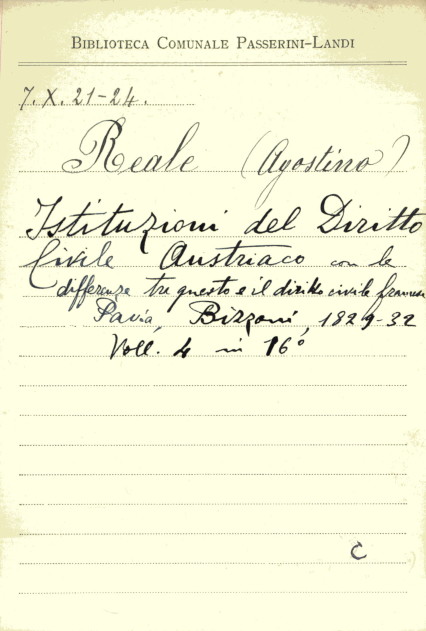 BIBLIOTECA COMUNALE PASSERINI-LANDI
7. X. 21-24.
Reale (Agostino)
Istituzioni del Diritto
Civile Austriaco con le
differenze tra questo e il diritto civile francese
Pavia, Bizzoni, 1829-32
Voll. 4 in 16°
C